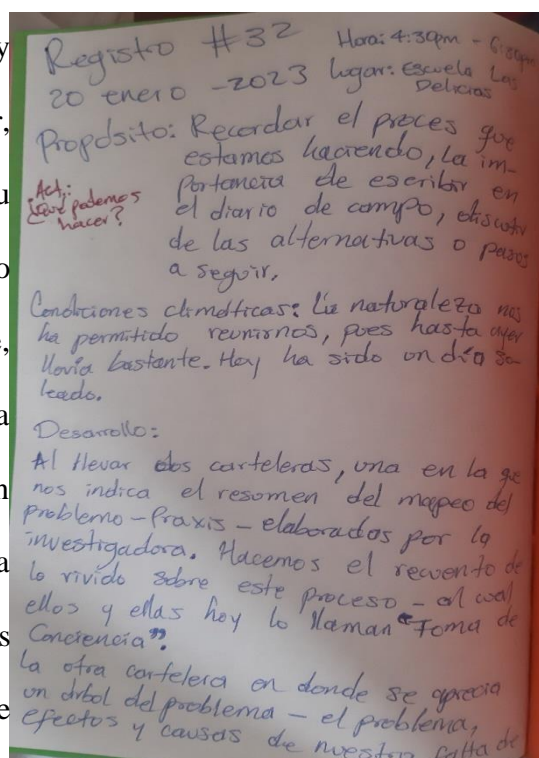 y
r,
u
o
e,
a
n
a
s
e
Registro #32 Hora: 4:30pm - 6:30pm
20 enero - 2023 Lugar: Escuela Las
Delicias
Propósito: Recordar el proces que
estamos haciendo, la im-
portancia de escribir en
el diario de campo, discutir
de las alternativas o pasos
a seguir.
Act:
¿Qué podemos
hacer?
Condiciones climáticas: La naturaleza nos
ha permitido reunirnos, pues hasta ayer
llovía bastante. Hoy ha sido un día so-
leado.
Desarrollo:
Al llevar dos carteleras, una en la qe
nos indica el resumen del mapeo del
problema - Praxis - elaborados por la
investigadora. Hacemos el recuento de
lo vivido sobre este proceso - al cual
ellos y ellas hoy lo llaman "Toma de
Conciencia".
La otra cartelera en donde se aprecia
un árbol del problema - el problema,
efectos y causas de nuestra falta de